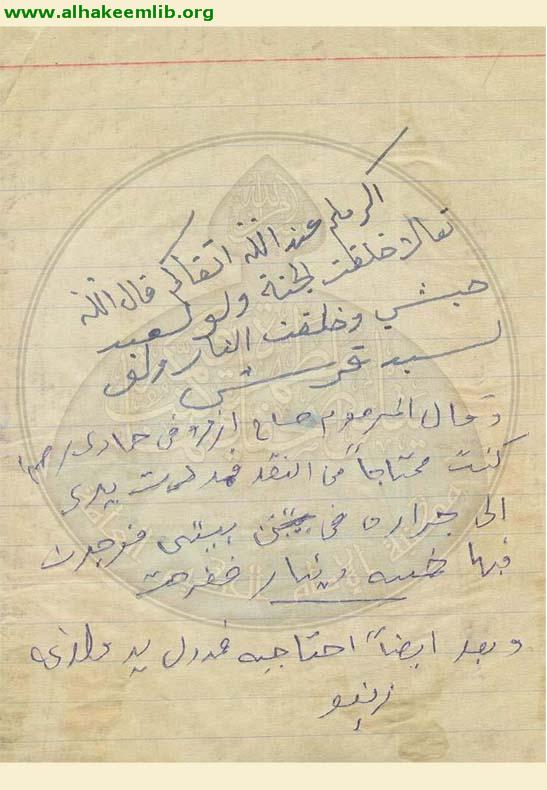 www.alhakeemlib.org
اكرمكم عند الله اتقاكم قال الله
تعالى خلقت الجنة ولو لعبد
حبشي وخلقت النار ولو
لسيد قرشي
وقال المرحوم حاج في
كنت محتاجاً من النقد فمدرت يدى
الى جراره فى بيتى فوجدت
فيها خمسه دينار ففرحت
وبعد ايضاً احتاجيه